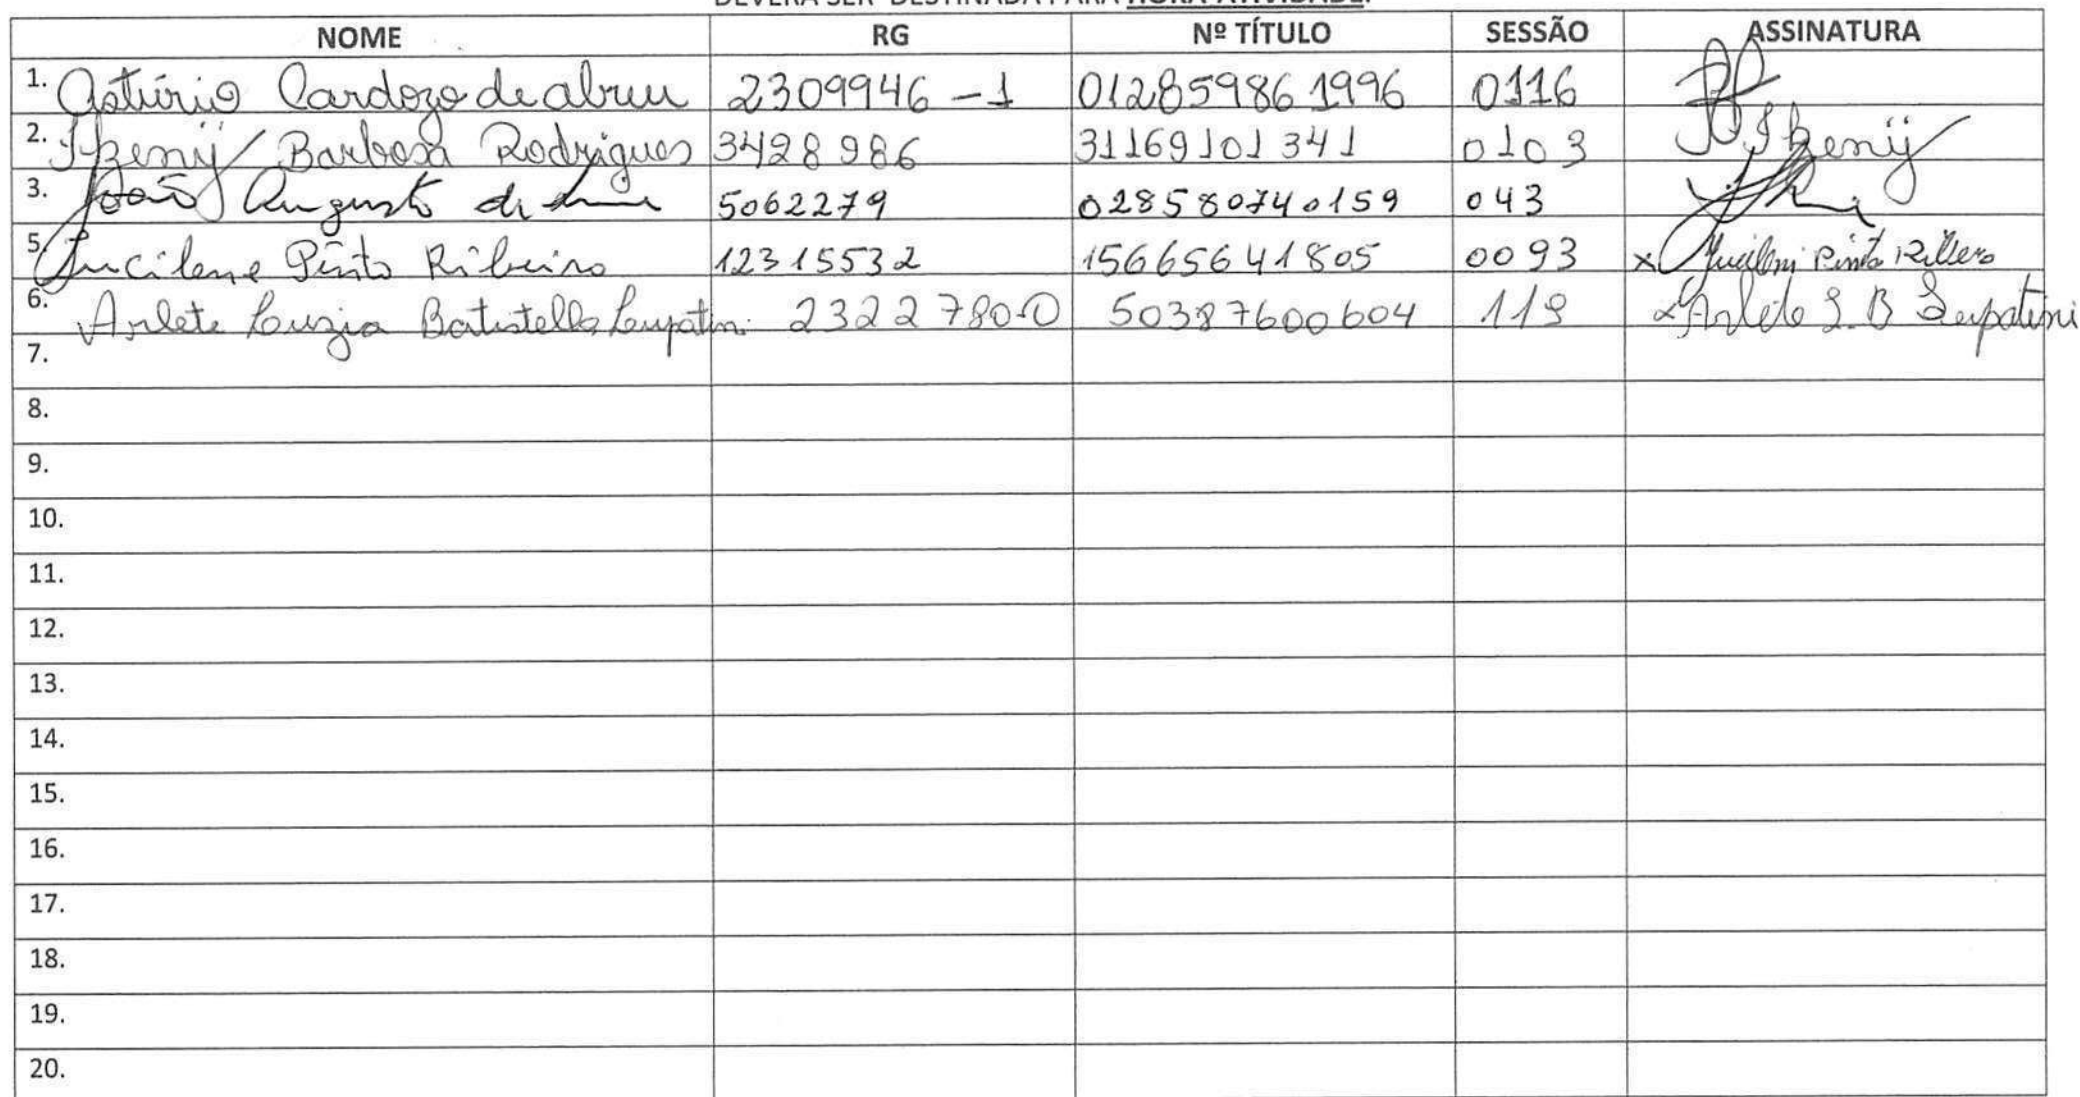 DEVERÁ SER DESTINADA PARA HORA ATIVIDADE.
NOME RG Nº TÍTULO SESSÃO ASSINATURA
1. Astúrio Cardozo de abreu 2309946-1 012859861996 0116
2. Ikenij Barbosa Rodrigues 3428986 31169101341 0103 Ikenij
3. João Augusto de 5062279 028580740159 043
5. Lucilene Pinto Ribeiro 12315532 15665641805 0093 x Lucilene Pinto Ribeiro
6. Arlete Luzia Batistella Lupatini 2322780-0 50387600604 119 Arlete L. B Lupatini
7.
8.
9.
10.
11.
12.
13.
14.
15.
16.
17.
18.
19.
20.